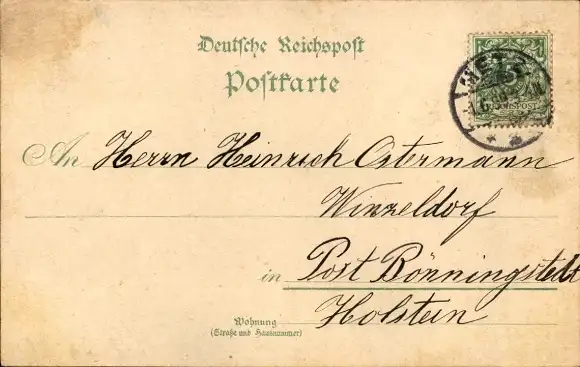 Deutsche Reichspost
Postkarte
REICHSPOST
An Herrn Heinrich Ostermann
Winzeldorf
in Post Bönningstedt
Holstein
Wohnung
(Straße und Hausnummer)